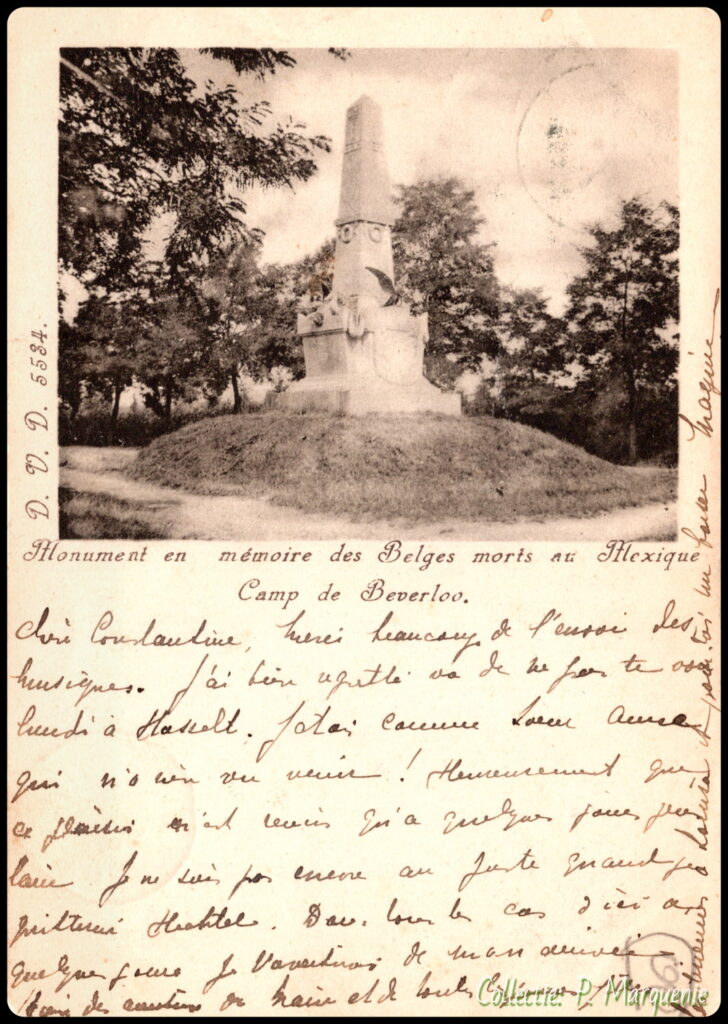 D. V. D. 5534.
Monument en mémoire des Belges morts au Mexique
Camp de Beverloo.
Chère Constantine, Merci beaucoup de l'envoi des
musiques. J'ai bien regretté de ne pas te voir
lundi à Hasselt. J'étais comme soeur Anne
qui n'a rien vu venir ! Heureusement que
ce plaisir n'est remis qu'à quelques jours
Je ne sais pas encore au juste quand je
quitterai Hechtel. Dans tous les cas d'ici à
quelques jours Je t'avertirai de mon arrivée
de et de toutes
et pour toi un baiser
Collectie P. Marquenie